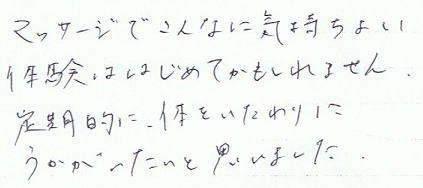 マッサージでこんなに気持ちよい
体験ははじめてかもしれません.
定期的に、体をいたわりに
うかがいたいと思いました.